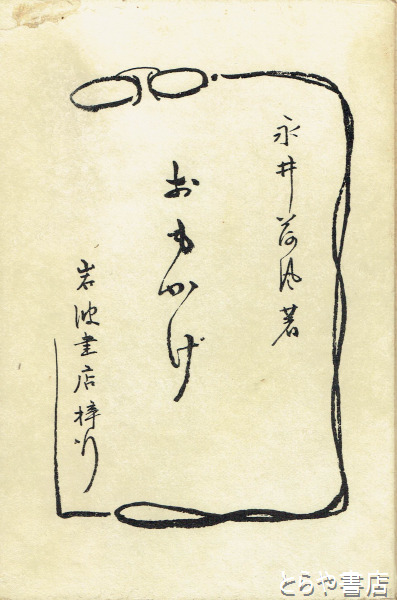 永井荷風著
おもかげ
岩波書店梓行
とらや書店